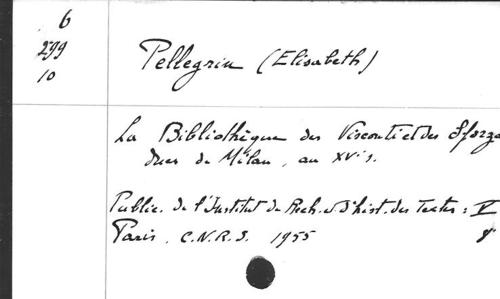 6
299
10
Pellegrin (Elisabeth)
La Bibliothèque des Visconti et des Sforza
ducs de Milan, au XVe s.
Public. de l'Institut de Rech. et d'hist. des Textes : V
Paris, C.N.R.S. 1955 8°